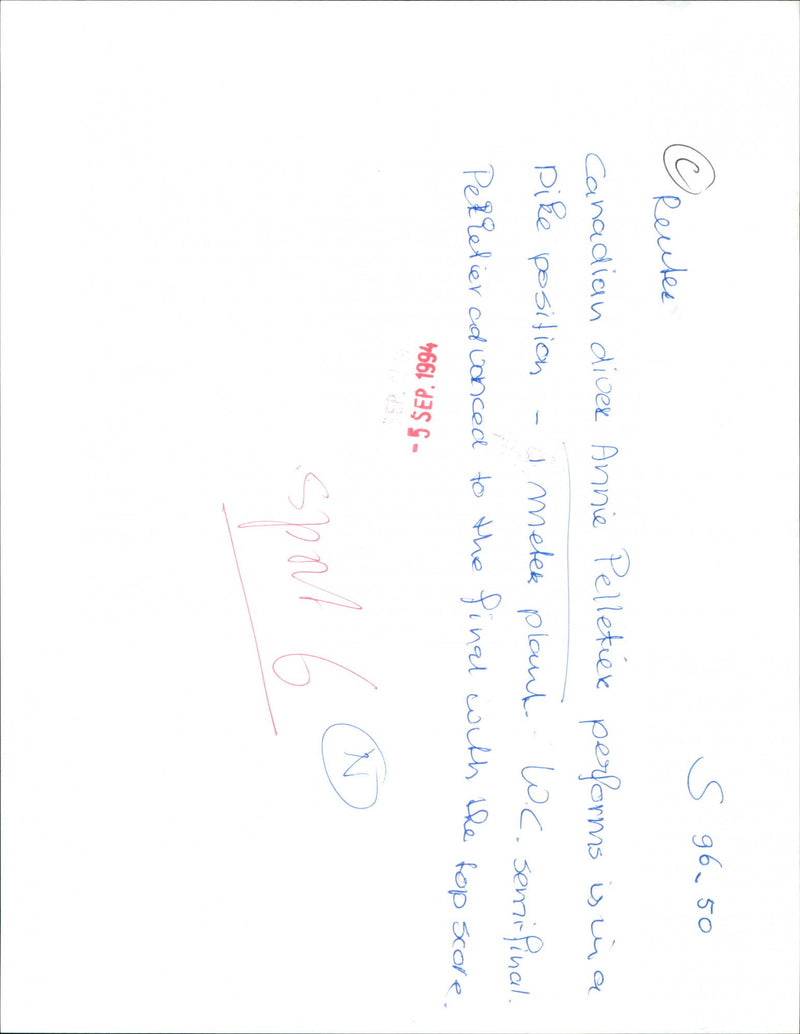 © Reuter
S 96-50
Canadian diver Annie Pelletier performs is in a
pike position - 1 meter plank. W.C. semi-final.
Pelletier advanced to the final with the top score.
- 5 SEP. 1994
6
N